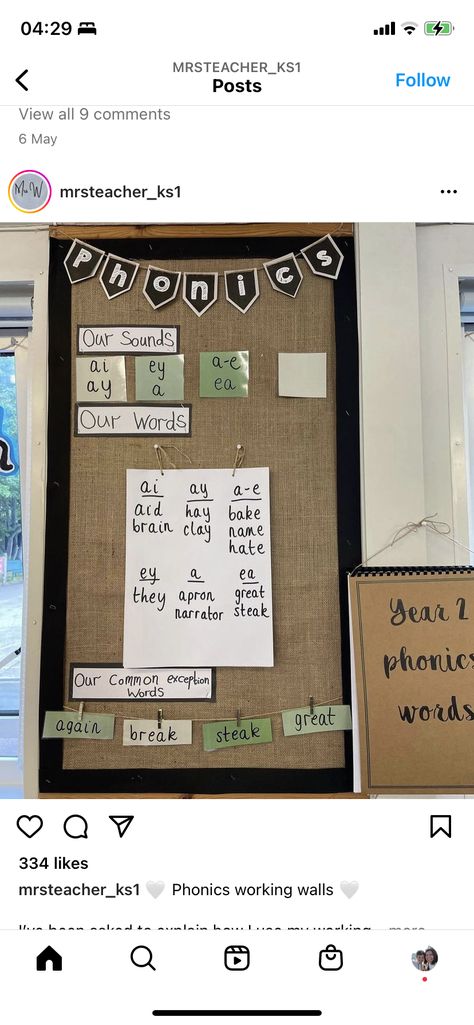 04:29
MRSTEACHER_KS1
Posts
Follow
View all 9 comments
6 May
Mrs W
mrsteacher_ks1
Phonics
Our Sounds
ai ey a-e
ay a ea
Our Words
ai ay a-e
aid hay bake
brain clay name
hate
ey a ea
they apron great
narrator steak
Our Common exception
Words
again break steak great
Year 2
phonics
words
334 likes
mrsteacher_ks1 🤍 Phonics working walls 🤍
I've been asked to explain how I use my working... more